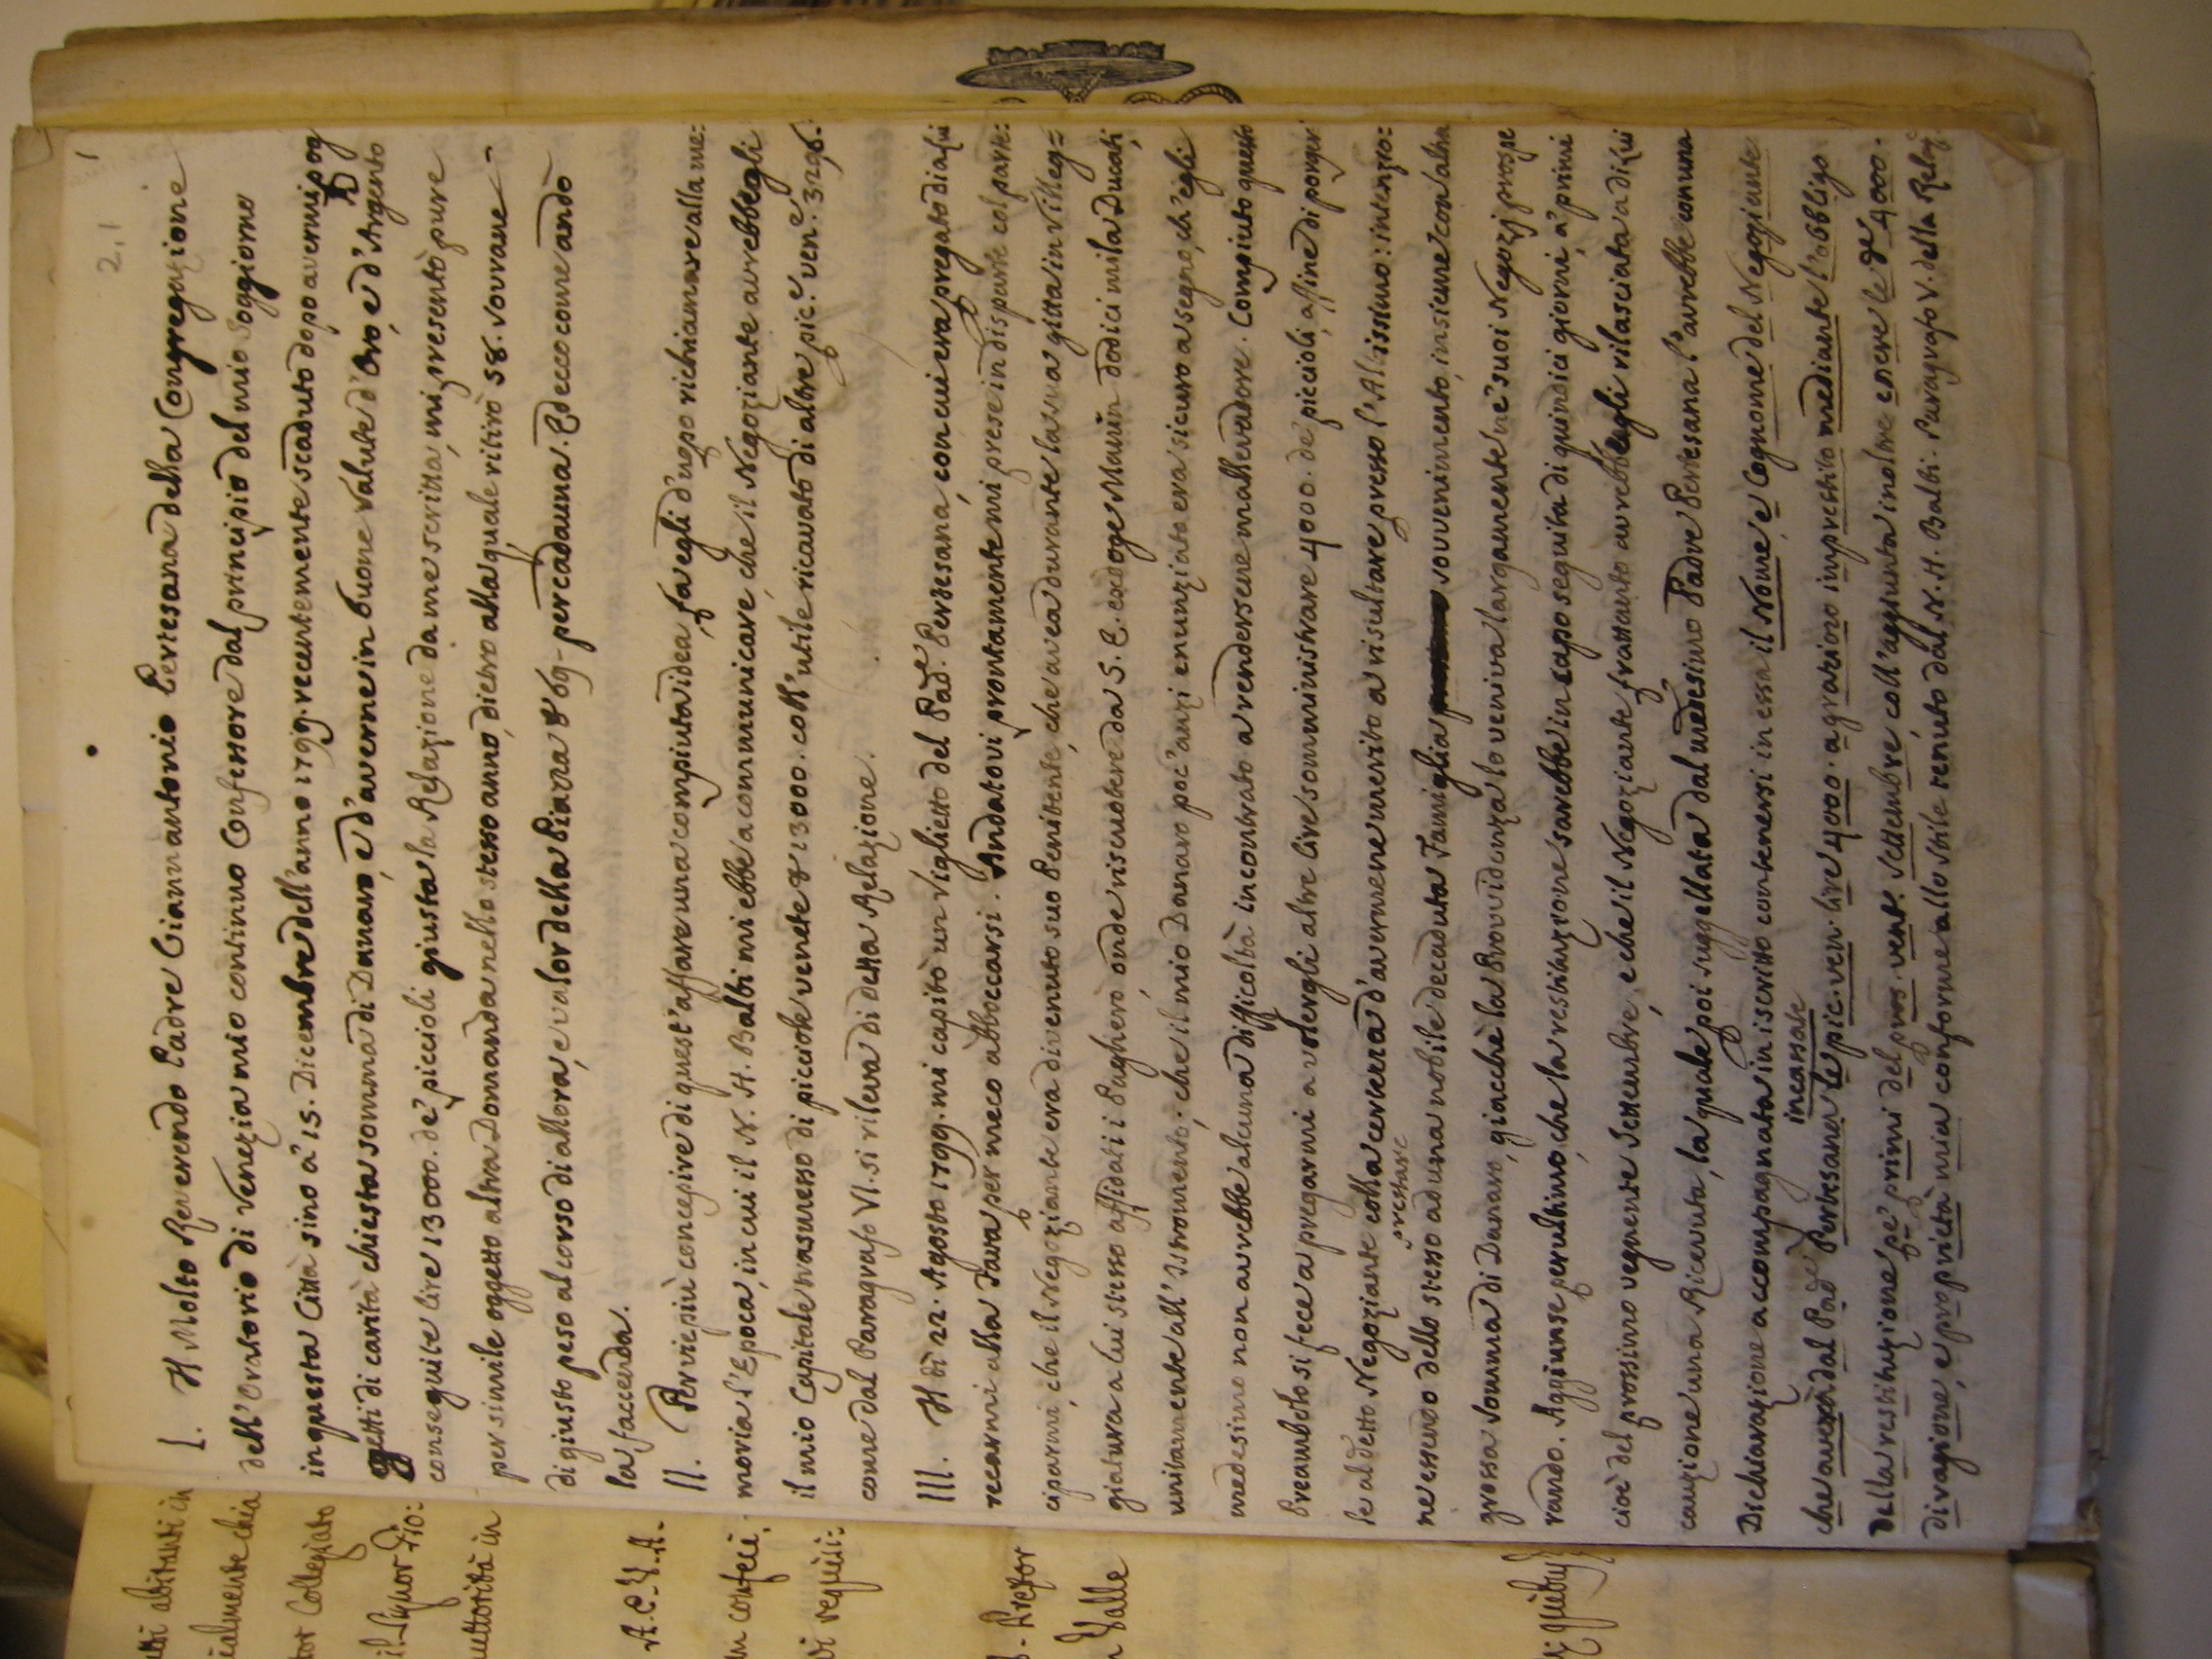 2.1
1
I. Il Molto Reverendo Padre Giannantonio Pertesana della Congregazione
dell'Oratorio di Venezia mio continuo Confessore dal principio del mio Soggiorno
in questa Città sino a' 15. Dicembre dell'anno 1799. recentemente scaduto dopo avermi p og
getti di carità chiesta somma di Danaro, e d'averne in buone Valute d'Oro, e d'Argento
conseguite Lire 13000. de' piccioli giusta la Relazione da me scritta, mi presentò pure
per simile oggetto altra Domanda nello stesso anno, dietro alla quale ritirò 58. Sovrane
di giusto peso al corso di allora, e valor della Piazza 69 per cadauna. Ed ecco come andò
la faccenda.
II. Per viepiù concepire di quest'affare una compiuta idea, fa egli d'uopo richiamare alla me:
moria l'Epoca, in cui il N. H. Balbi mi ebbe a communicare, che il Negoziante avrebbe egli
il mio Capitale trasunesso di picciole venete 13000. coll'utile ricavato di altre pic.e ven.e 3296.
come dal Paragrafo VI. si rileva di detta Relazione.
III. Il dì 22. Agosto 1799. mi capitò un Viglietto del Pad.e Pertesana, con cui era pregato di a lui
recarmi alla Tava per meco abboccarsi. Andatovi prontamente mi prese in disparte col parte:
ciparmi, che il Negoziante era divenuto suo Penitente, che avea durante la sua gitta in Villeg=
giatura a lui stesso affidati i Pagherò, onde riscuotere da S. E. Marin dodici mila Ducati,
unitamente all'Istromento, che il mio Danaro poc'anzi enunziato era sicuro a segno, ch'egli
medesimo non avrebbe alcuna difficoltà incontrato a rendersene mallevadore. Compiuto questo
Preambolo si fece a pregarmi a volergli altre Lire somministrare 4000. de' piccioli, affine di porger
le al detto Negoziante colla certezza d'avermene merito a risultare presso l'Altissimo: intenzio:
prestare
ne essendo dello stesso ad una nobile decaduta Famiglia sovvenimento, insieme con altra
grossa Somma di Danaro, giacchè la Provvidenza lo veniva largamente ne' suoi Negozj prospe
rando. Aggiunse per ultimo, che la restituzione sarebbe in capo seguita di quindici giorni, a' primi
cioè del prossimo vegnente Settembre, e che il Negoziante frattanto avrebbe egli rilasciata a di lui
cauzione una Ricevuta, la quale poi suggellata dal medesimo Padre Pertesana l'avrebbe con una
Dichiarazione accompagnata in iscritto contenersi in essa il Nome, e Cognome del Negoziante
incassate
che aveva dal Pad.e Pertesana le pic. ven. lire 4000. a grazioso imprestito mediante l'obbligo
della restituzione pe' primi del pros. vent. Settembre, coll'aggiunta inoltre essere le 4000.
di ragione, e proprietà mia conforme allo stile tenuto dal N. H. Balbi. Paragrafo V. della Relaz.
abitanti in
ialmente chia
tor Collegiato
il Signor Dio:
auttorità in
A.C.V.A.
in confeci
di requisi:
Pretor
Valle